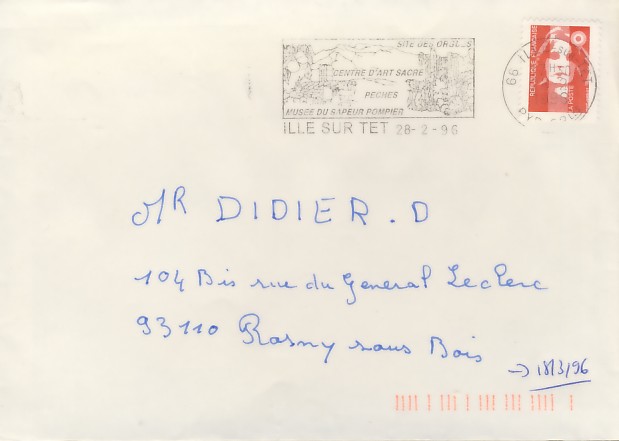 SITE DES ORGUES
CENTRE D'ART SACRE
PECHES
MUSEE DU SAPEUR POMPIER
ILLE SUR TET 28-2-96
REPUBLIQUE FRANCAISE
LA POSTE
66
MR DIDIER . D
104 Bis rue du General Leclerc
93110 Rosny sous Bois
→ 18/3/96